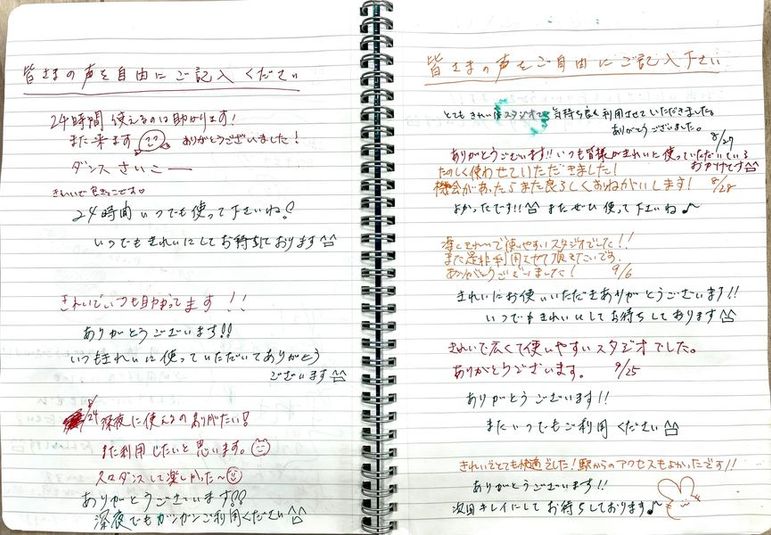 皆さまの声を自由にご記入ください
24時間使えるのは助かります!
また来ます ありがとうございました!
ダンスさいこー
24時間いつでも使って下さいね!
いつでもきれいにしてお待ちしております
きれいでいつも助かってます!!
ありがとうございます!!
いつもきれいに使っていただいてありがとう
ございます
8/24 深夜に使えるのありがたい!
また利用したいと思います。
スロダンスして楽しかった〜
ありがとうございます!!
深夜でもガンガンご利用ください
皆さまの声をご自由にご記入下さい
とてもきれいなスタジオで気持ち良く利用させていただきました。
ありがとうございました。 8/27
ありがとうございます!!いつも皆様がきれいに使っていただいている
おかげです
たのしく使わせていただきました!
機会があったらまた良ろしくおねがいします! 8/28
よかったです!! またぜひ使って下さいね♪
きれいで使いやすいスタジオでした!!
また是非利用させて頂きたいです。
ありがとうございました! 9/6
きれいにお使いいただきありがとうございます!!
いつでもきれいにしてお待ちしております
きれいで広くて使いやすいスタジオでした。
ありがとうございます。 9/25
ありがとうございます!!
またいつでもご利用ください
きれいでとても快適でした!駅からのアクセスもよかったです!!
ありがとうございます!!
次回もキレイにしてお待ちしております♪